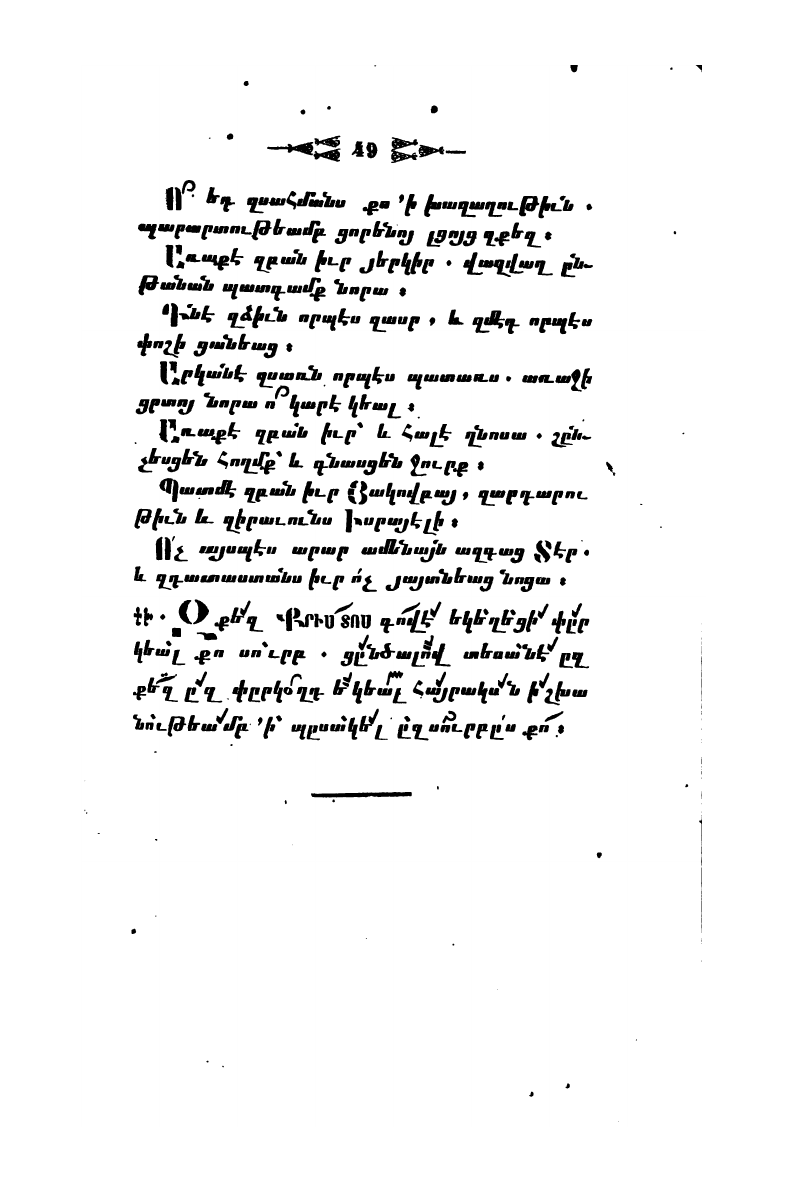 49
Ո՞ եդ զսահմանս քո 'ի խաղաղութիւն .
պարարտութեամբ ցորենոյ լցոյց զքեզ :
Առաքէ զբան իւր յերկիր . վաղվաղ ըն֊
թանան պատգամք նորա :
Դնէ զձիւն որպէս զասր , և զմէգ որպէս
փոշի ցանեաց :
Արկանէ զսառն որպէս պատառս . առաջի
ցրտոյ նորա ո՞ կարէ կեալ :
Առաքէ զբան իւր՝ և հալէ զնոսա . շըն֊
չեսցեն հողմք՝ և գնասցեն ջուրք :
Պատմէ զբան իւր Յակովբայ , զարդարու
թիւն և զիրաւունս Իսրայէլի :
Ո՛չ այսպէս արար ամենայն ազգաց Տէր .
և զդատաստանս իւր ո՛չ յայտնեաց նոցա :
Քրիստոս գովէ եկեղեցի փըր
կեալ քո սուրբ . ցընծալով տեսանէ ըզ
քեզ ըզ փըրկօղդ եկեալ հայրական իշխա
նութեամբ 'ի պըսակել ըզսուրբըս քո :